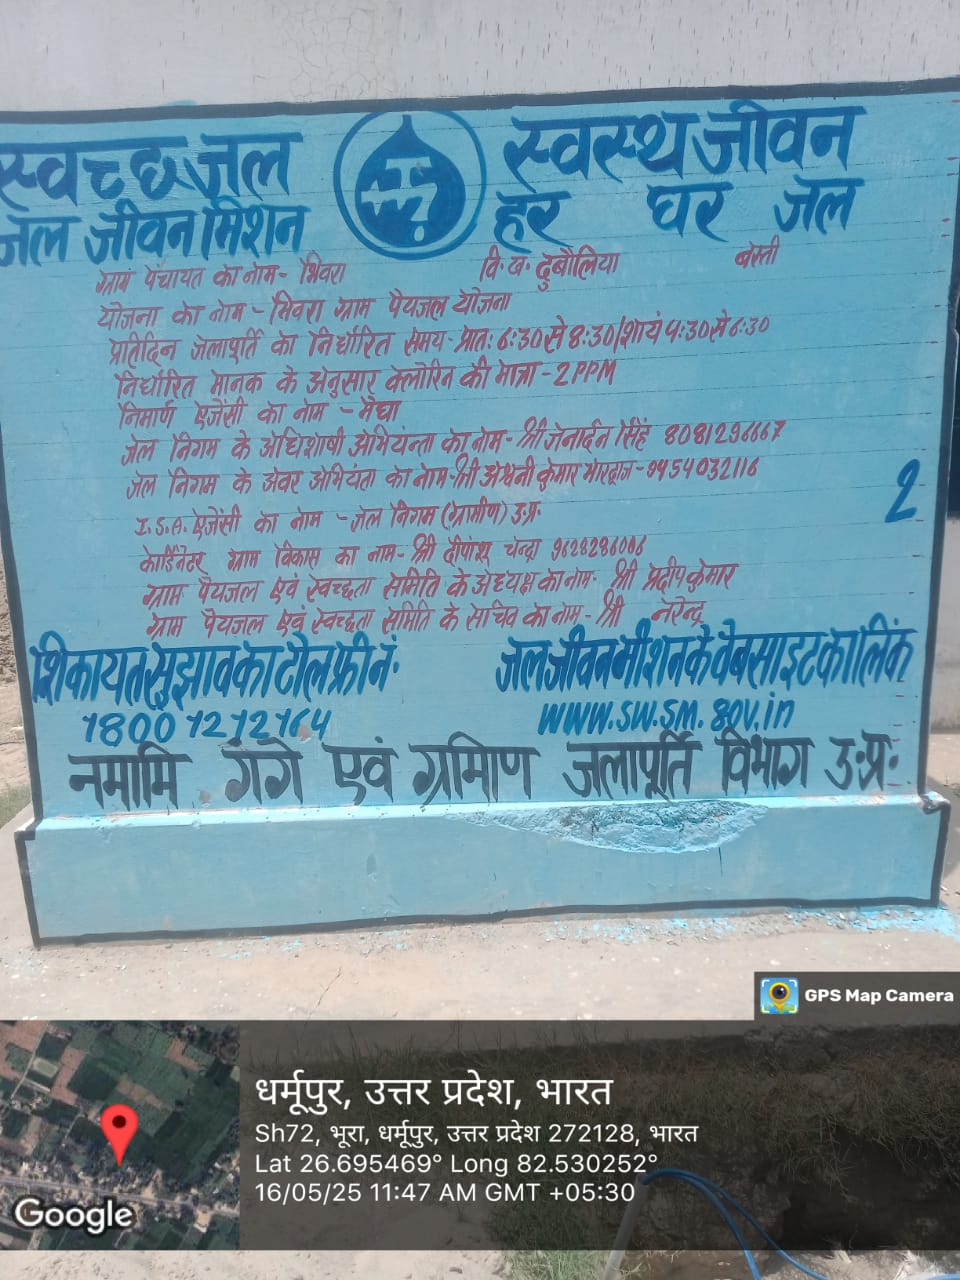 स्वच्छ जल स्वस्थ जीवन
जल जीवन मिशन हर घर जल
ग्राम पंचायत का नाम- भिवरा वि.ख. दुबौलिया बस्ती
योजना का नाम - भिवरा ग्राम पेयजल योजना
प्रतिदिन जलापूर्ति का निर्धारित समय- प्रात: 6:30 से 8:30/शायं 4:30 से 6:30
निर्धारित मानक के अनुसार क्लोरिन की मात्रा - 2 PPM
निमार्ण एजेंसी का नाम - मेघा
जल निगम के अधिशाषी अभियंन्ता का नाम- श्री जनार्दन सिंह 8081296667
जल निगम के अवर अभियंता का नाम- श्री अश्वनी कुमार भारद्वाज- 9454032116
I.S.A. एजेंसी का नाम - जल निगम (ग्रामीण) उ.प्र.
कोर्डिनेटर ग्राम विकास का नाम- श्री दीपांशू चन्द्रा 9628296006
ग्राम पेयजल एवं स्वच्छता समिति के अध्यक्ष का नाम- श्री प्रदीप कुमार
ग्राम पेयजल एवं स्वच्छता समिति के सचिव का नाम- श्री नरेन्द्र
2
शिकायत सुझाव का टोल फ्री नं. जल जीवन मीशन के वेबसाइट का लिंक
1800 1212164 www.sw.sm.gov.in
नमामि गंगे एवं ग्रामिण जलापूर्ति विभाग उ.प्र.
GPS Map Camera
धर्मूपुर, उत्तर प्रदेश, भारत
Sh72, भूरा, धर्मूपुर, उत्तर प्रदेश 272128, भारत
Lat 26.695469° Long 82.530252°
16/05/25 11:47 AM GMT +05:30
Google